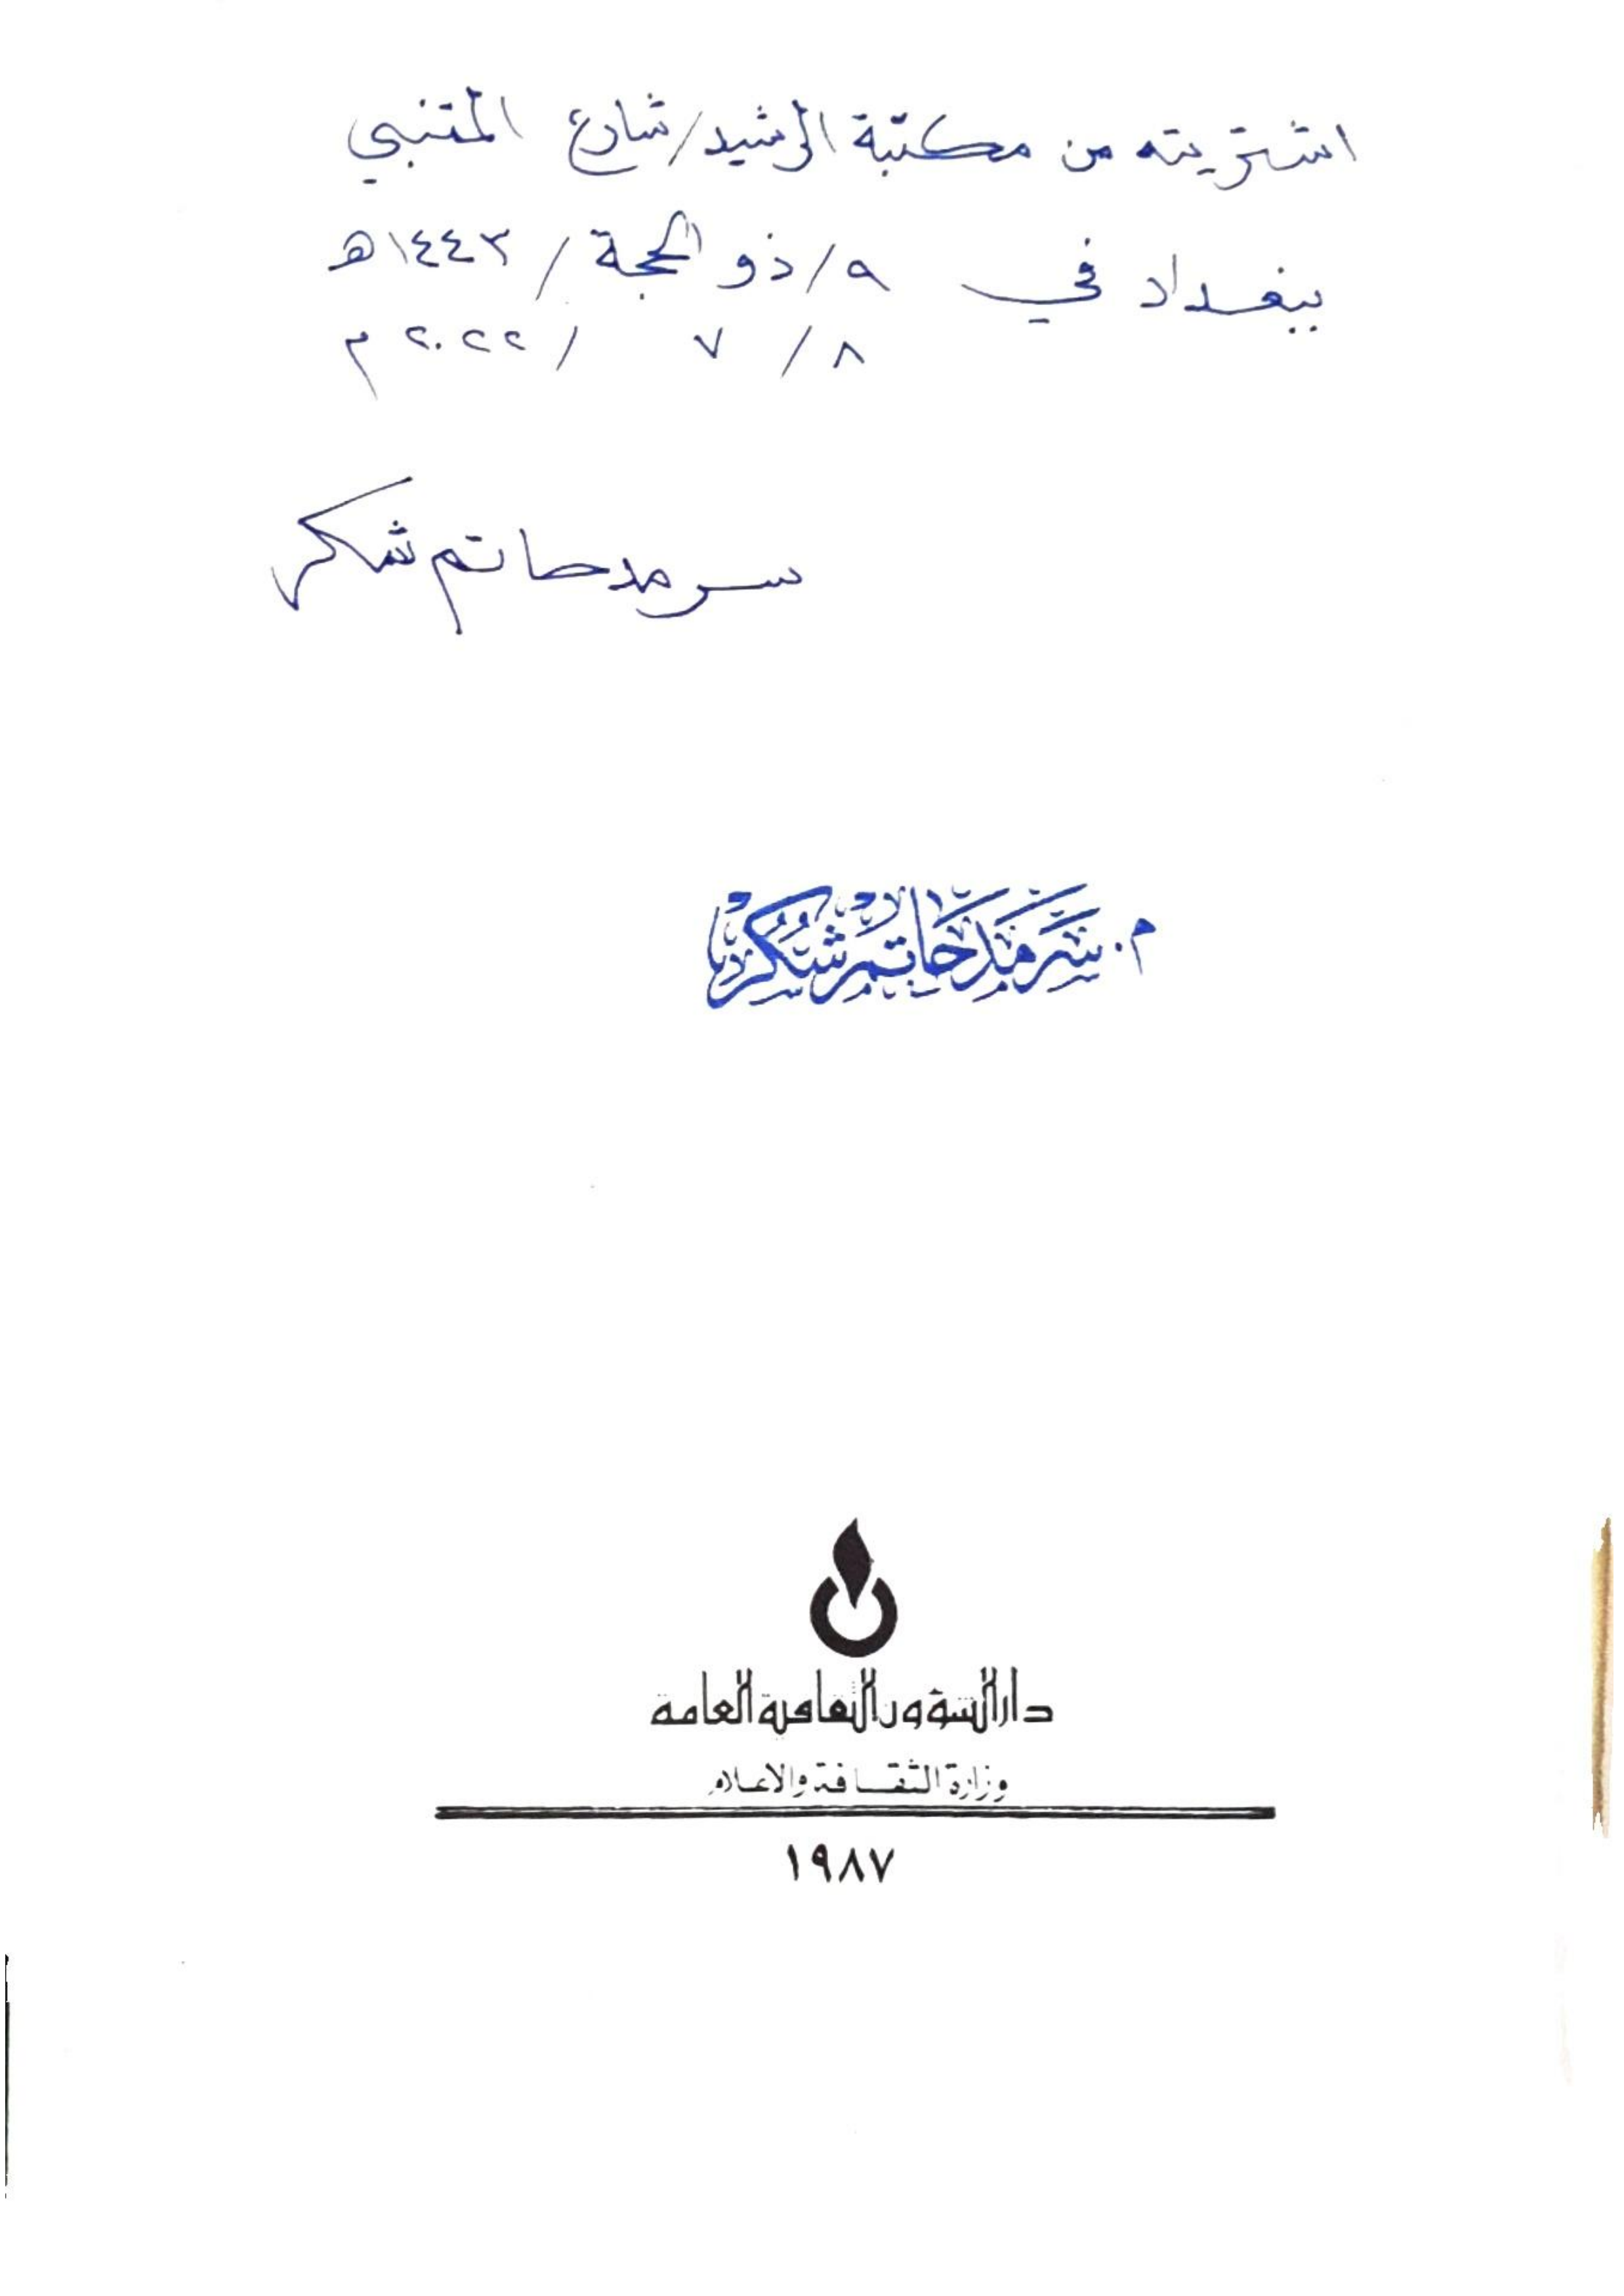 اشتريته من مكتبة الرشيد/شارع المتنبي
ببغداد في ٩/ذو الحجة/١٤٤٣هـ
٨/٧/٢٠٢٢م
سرمد حاتم شكر
م. سرمد حاتم شكر
دار الشؤون الثقافية العامة
وزارة الثقافة والاعلام
١٩٨٧